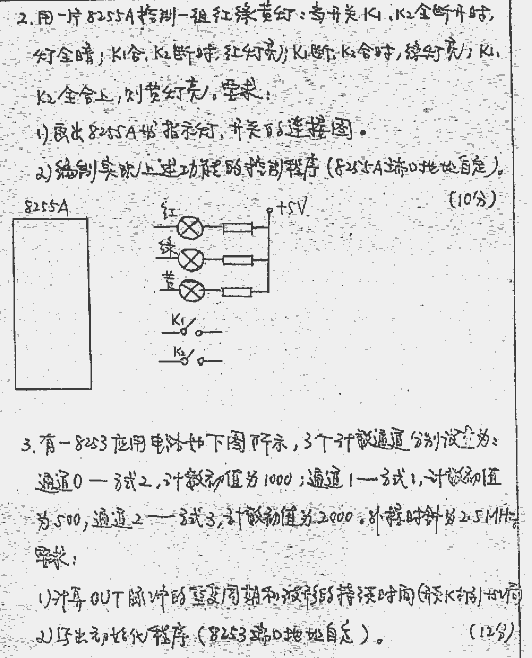 2.用一片8255A控制一组红绿黄灯:当开关K1、K2全断开时,
灯全暗;K1合、K2断时,红灯亮;K1断、K2合时,绿灯亮;K1、
K2全合上,则黄灯亮。要求:
1)画出8255A与指示灯、开关的连接图。
2)编制实现上述功能的控制程序(8255A端口地址自定)。
(10分)
8255A
红
+5V
绿
黄
K1
K2
3.有一8253应用电路如下图所示,3个计数通道分别设立为:
通道0一方式2,计数初值为1000;通道1一方式1,计数初值
为500,通道2一方式3,计数初值为2000。外接时钟为2.5MHz
要求:
1)计算OUT脉冲的重复周期和波形的持续时间
2)写出初始化程序(8253端口地址自定)。 (12分)